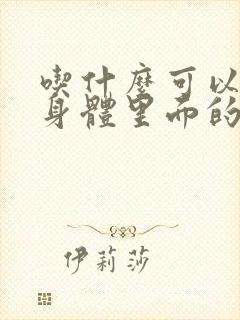 喫什麼可以
身體里面的
伊莉莎